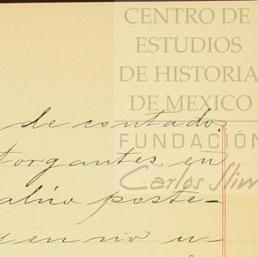 CENTRO DE
ESTUDIOS
DE HISTORIA
DE MEXICO
FUNDACIÓN
Carlos Slim
de contado.
torgantes en
poste-